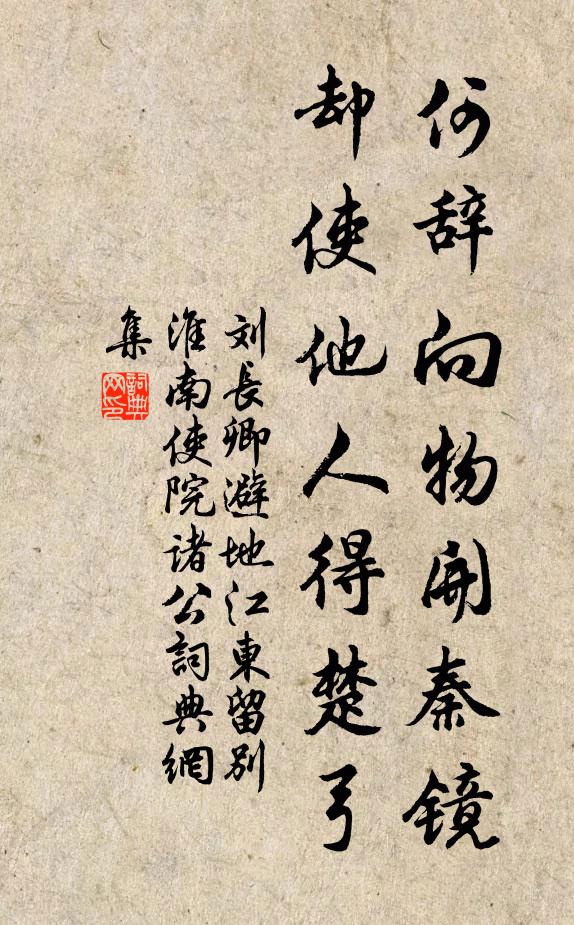 何辞向物开秦镜
却使他人得楚弓
刘長卿避地江東留别
淮南使院诸公詞典網
集
詞典
网印